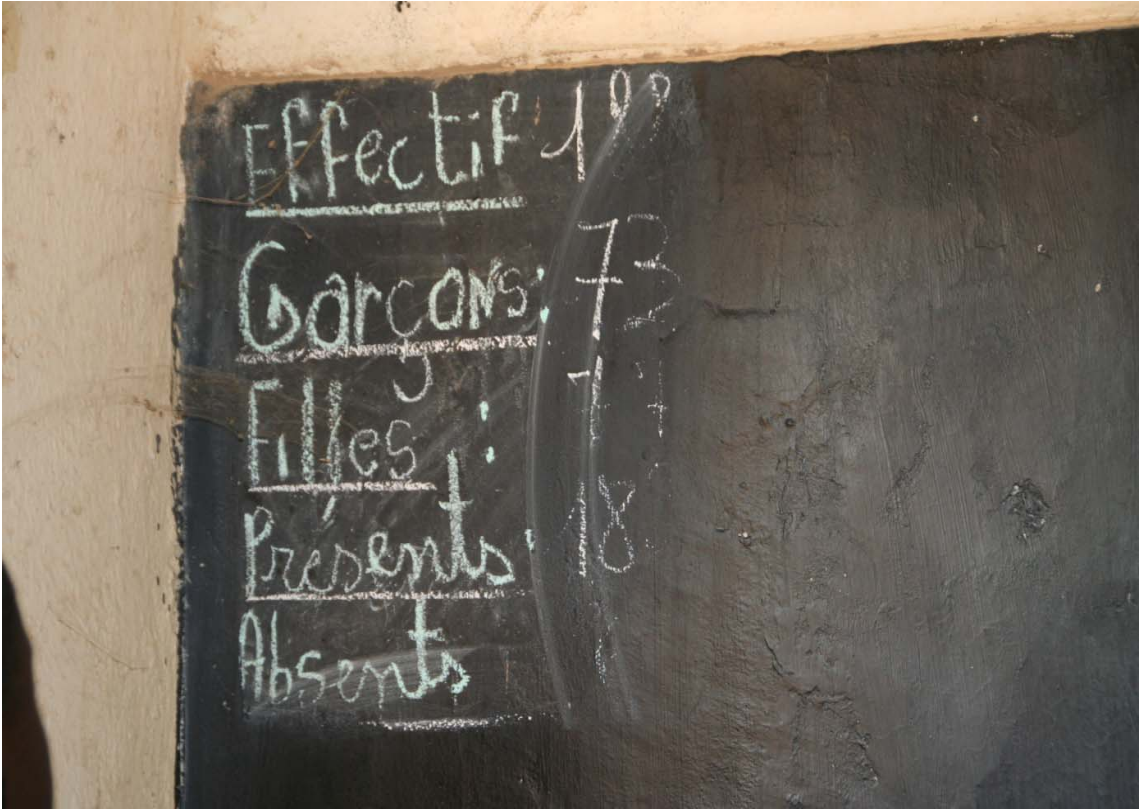 Effectif
Garçons: 73
Filles :
Présents: 18
Absents